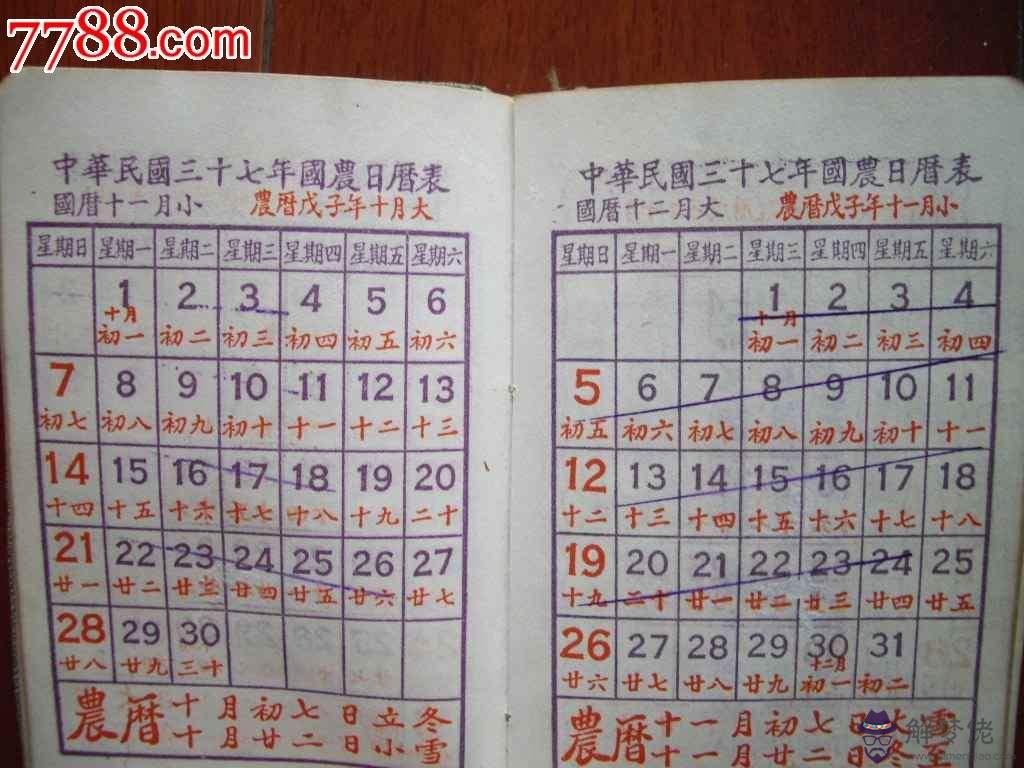 7788.com
中華民國三十七年國農日曆表
國曆十一月小 農曆戊子年十月大
星期日 星期一 星期二 星期三 星期四 星期五 星期六
1 2 3 4 5 6
十月
初一 初二 初三 初四 初五 初六
7 8 9 10 11 12 13
初七 初八 初九 初十 十一 十二 十三
14 15 16 17 18 19 20
十四 十五 十六 十七 十八 十九 二十
21 22 23 24 25 26 27
廿一 廿二 廿三 廿四 廿五 廿六 廿七
28 29 30
廿八 廿九 三十
農曆十月初七日立冬
十月廿二日小雪
中華民國三十七年國農日曆表
國曆十二月大 農曆戊子年十一月小
星期日 星期一 星期二 星期三 星期四 星期五 星期六
1 2 3 4
十一月
初一 初二 初三 初四
5 6 7 8 9 10 11
初五 初六 初七 初八 初九 初十 十一
12 13 14 15 16 17 18
十二 十三 十四 十五 十六 十七 十八
19 20 21 22 23 24 25
十九 二十 廿一 廿二 廿三 廿四 廿五
26 27 28 29 30 31
十二月
廿六 廿七 廿八 廿九 初一 初二
農曆十一月初七日大雪
十一月廿二日冬至
解夢佬